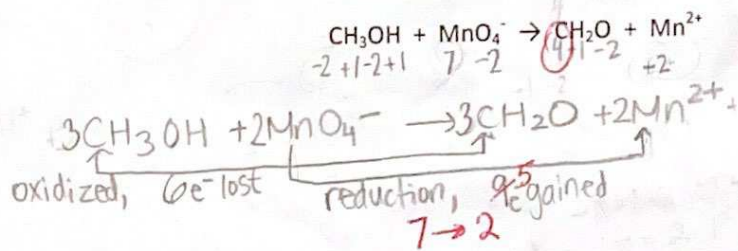 CH₃OH + MnO₄⁻ → CH₂O + Mn²⁺
-2 +1 -2 +1 7 -2 4 +1 -2 +2
3CH₃OH + 2MnO₄⁻ → 3CH₂O + 2Mn²⁺
oxidized, 6e⁻ lost reduction, 5 gained
7 → 2